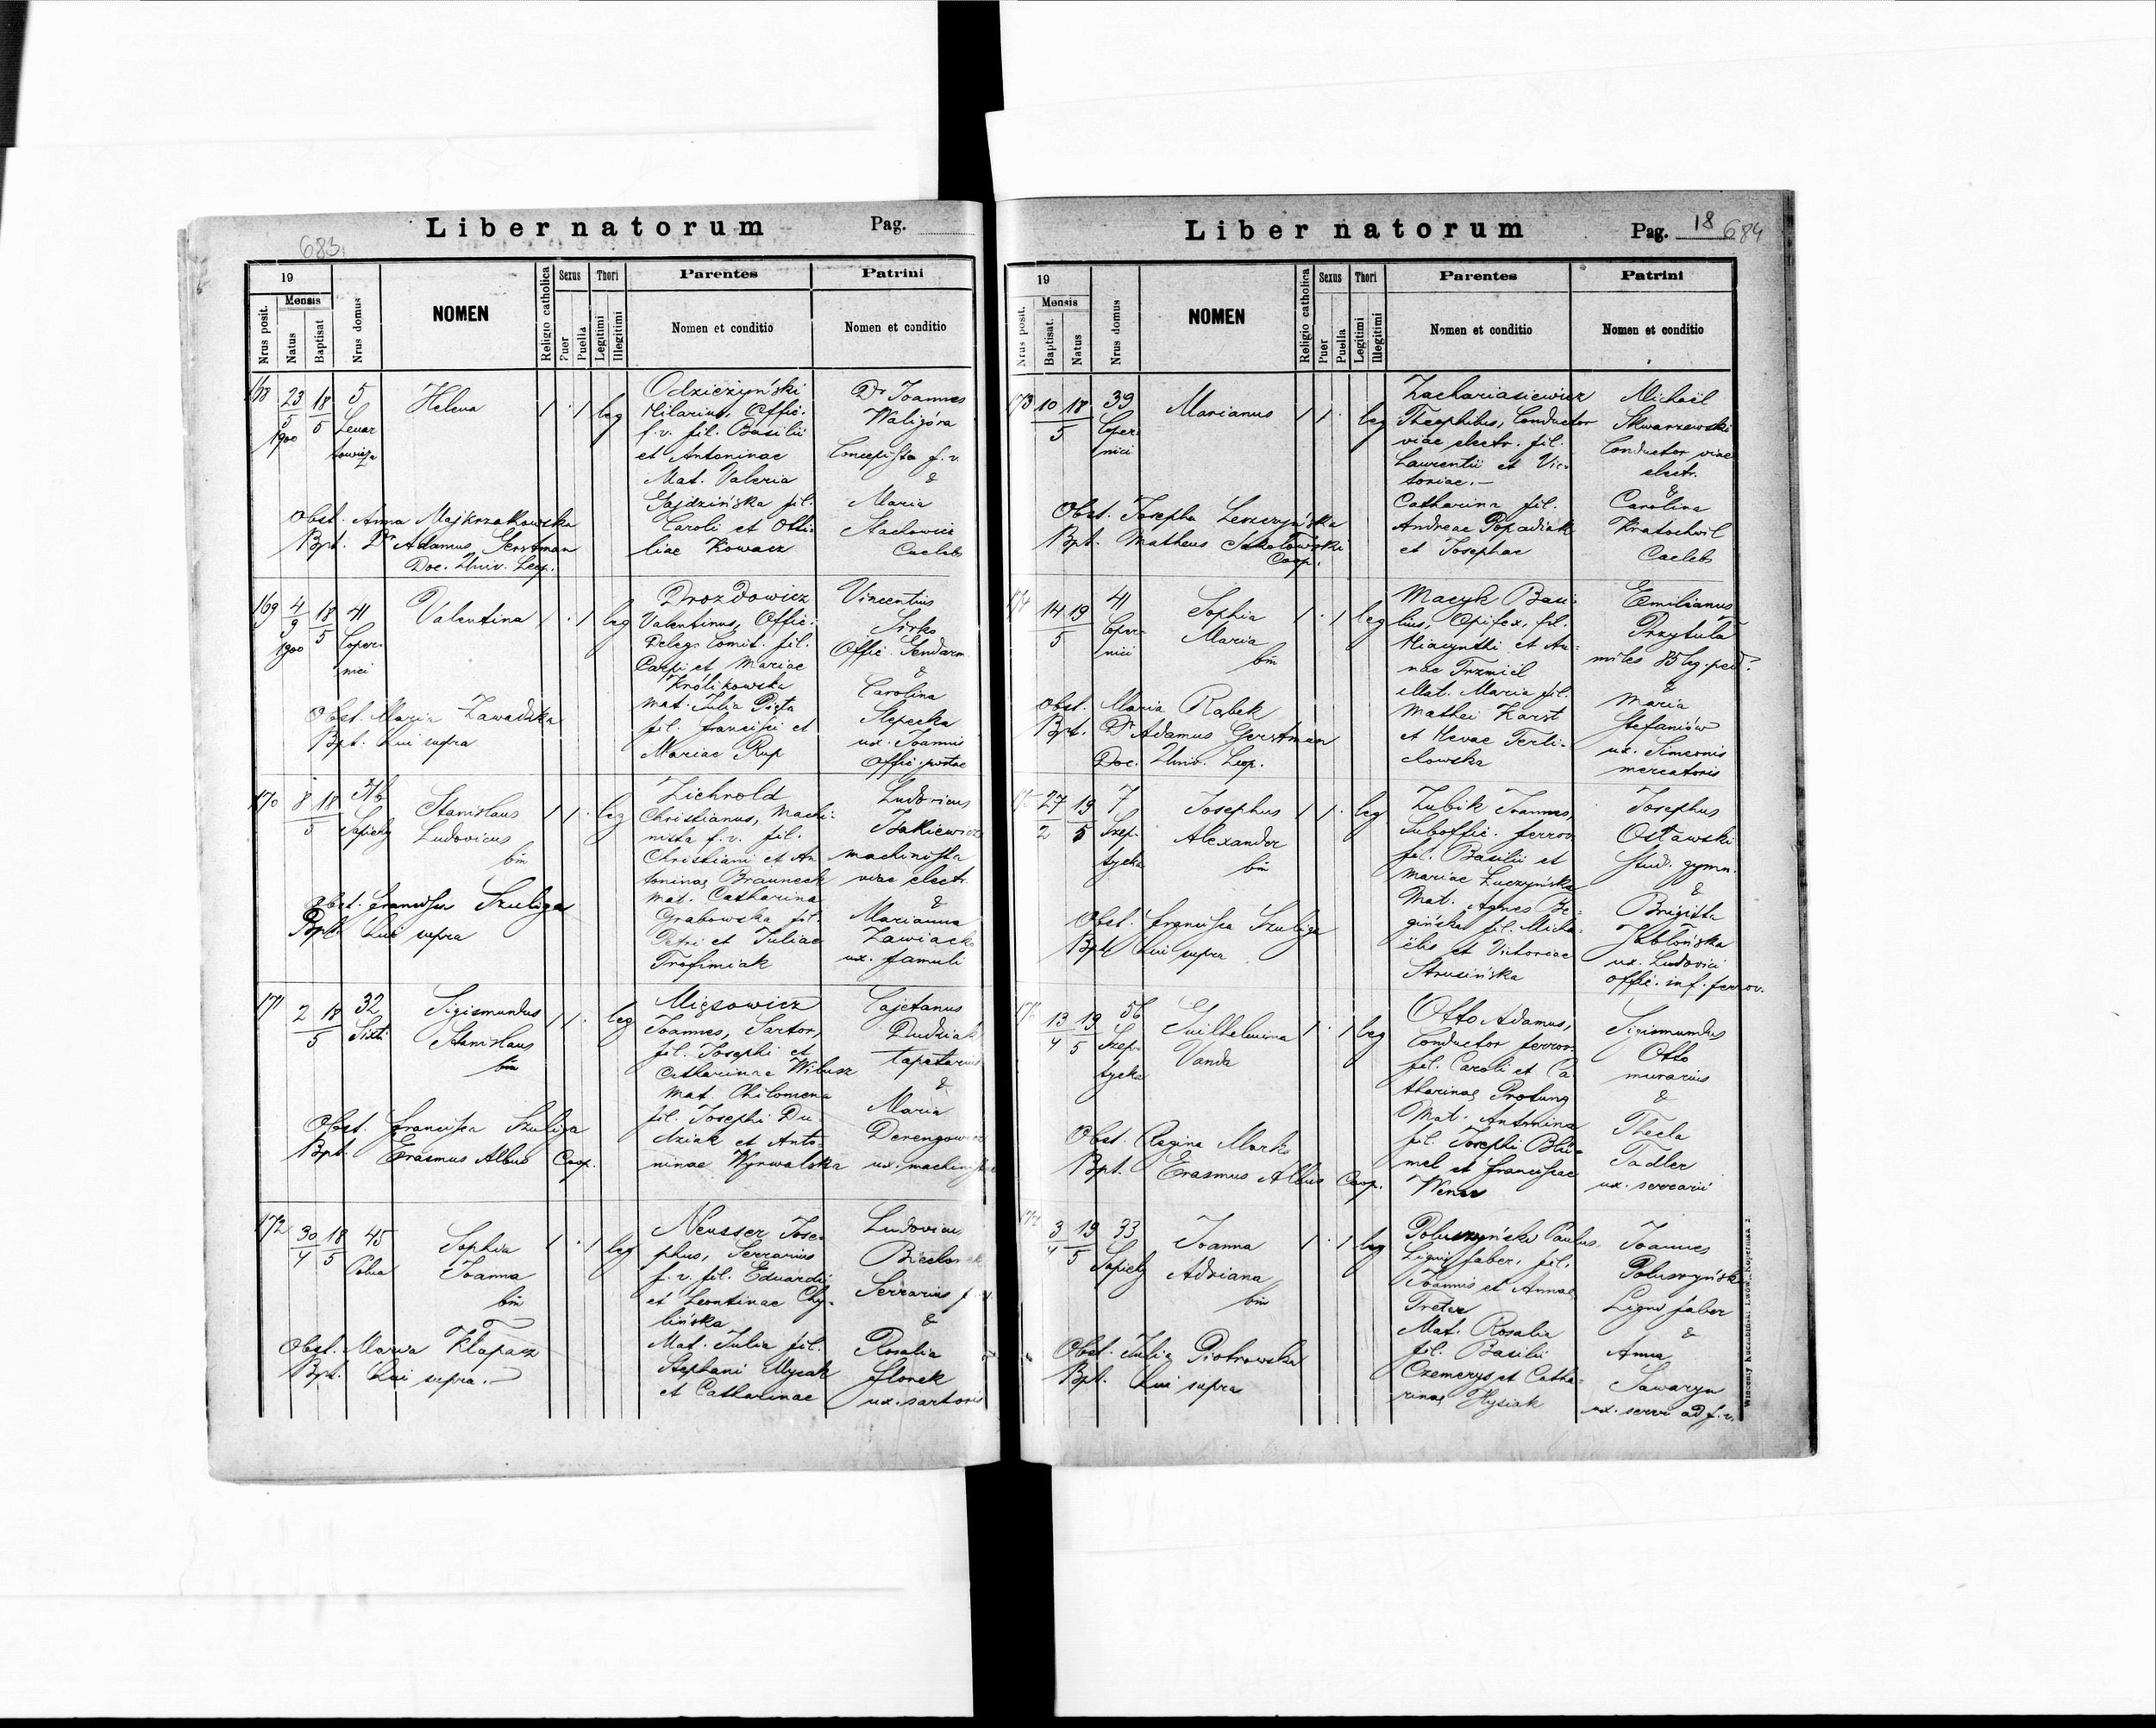 Liber natorum Pag.
683
19
Mensis
Nrus posit.
Natus
Baptisat
Nrus domus
NOMEN
Religio catholica
Sexus
Puer
Puella
Thori
Legitimi
Illegitimi
Parentes
Nomen et conditio
Patrini
Nomen et conditio
168 23/5 1900 18/5 5 Helena 1 · 1 leg
Odzieżyński
Hilarius, Offic.
f.v. fil. Basilii
et Antoninae
Mat. Valeria
Gajdzińska fil.
Caroli et Otti-
liae Kowacz
Dr Joannes
Waligóra
Concepista f.v.
&
Maria
Stachowicz
Caelebs
Obst. Anna Majkrzakowska
Bpt. Dr Adamus Gerstman
Doc. Univ. Leop.
169 4/9 1900 18/5 41 Coper-
nici
Valentina 1 · 1 leg
Drozdowicz
Valentinus, Offic.
Deleg. Comit. fil.
Carpi et Mariae
Królikowska
Mat. Julia Pięta
fil. Francisci et
Mariae Rup
Vincentius
Sirko
Offic. Gendarm
&
Carolina
Stepecka
ux. Joannis
Offic. postae
Obst. Maria Zawadzka
Bpt. Qui supra
170 8 18/5 Sapiehy
Stanislaus
Ludovicus
bin
1 1 · leg
Zichrold
Christianus, Machi-
nista f.v. fil.
Christiani et An-
toninae Brauneck
Mat. Catharina
Grabowska fil.
Petri et Juliae
Trofimiak
Ludovicus
Isakiewicz
machinista
viae electr.
&
Marianna
Zawiacka
ux. famuli
Obst. Francisca Szuliga
Bpt. Qui supra
171 2 18/5 32 Sixti
Sigismundus
Stanislaus
bin
1 1 · leg
Mięsowicz
Joannes, Sartor,
fil. Josephi et
Catharinae Wilusz
Mat. Philomena
fil. Josephi Du-
dziak et Anto-
ninae Wyrwalska
Cajetanus
Dudziak
tapetarius
&
Maria
Derengowicz
ux. machinistae
Obst. Francisca Szuliga
Bpt. Erasmus Albus Coop.
172 30/4 18/5 45
Sophia
Joanna
bin
1 · 1 leg
Neusser Jose-
phus, Serrarius
f.v. fil. Eduardi
et Leontinae Chy-
lińska
Mat. Julia fil.
Stephani Wysak
et Catharinae
Ludovicus
Serrarius f.v.
&
Rosalia
Florek
ux. sartoris
Obst. Maria Kłapacz
Bpt. Qui supra.
Liber natorum Pag. 18 684
19
Mensis
Nrus posit.
Baptisat.
Natus
Nrus domus
NOMEN
Religio catholica
Sexus
Puer
Puella
Thori
Legitimi
Illegitimi
Parentes
Nomen et conditio
Patrini
Nomen et conditio
173 10 18/5 39 Coper-
nici
Marianus 1 1 · leg
Zachariasiewicz
Theophilus, Conductor
viae electr. fil.
Laurentii et Vic-
toriae.—
Catharina fil.
Andreae Popadiak
et Josephae
Michaël
Skwarzewski
Conductor viae
electr.
&
Carolina
Kratochwil
Caelebs
Obst. Josepha Leszczyńska
Bpt. Matheus Sokołowski
Coop.
174 14 19/5 41 Coper-
nici
Sophia
Maria
bin
1 · 1 leg
Macyk Basi-
lius, Opifex, fil.
Hiacynthi et An-
nae Trzmiel
Mat. Maria fil.
Mathei Karst
et Hevae Terli-
clowska
Emilianus
Przytuła
miles 85 leg. ped.
&
Maria
Stefaniów
ux. Simeonis
mercatoris
Obst. Maria Rąbek
Bpt. Dr Adamus Gerstman
Doc. Univ. Leop.
175 27/2 19/5 7 Szep-
tycka
Josephus
Alexander
bin
1 1 · leg
Zubik Joannes,
Suboffic. ferrov.
fil. Basilii et
Mariae Łuczyńska
Mat. Agnes Be-
gińska fil. Micha-
ëlis et Victoriae
Strusińska
Josephus
Ostawski
stud. gymn.
&
Brigitta
Jabłońska
ux. Ludovici
offic. inf. ferrov.
Obst. Francisca Szuliga
Bpt. Qui supra
176 13/4 19/5 56 Szep-
tycka
Guilhelmina
Vanda
1 · 1 leg
Otto Adamus,
Conductor ferrov.
fil. Caroli et Ca-
tharinae Protung
Mat. Antonina
fil. Josephi Blü-
mel et Franciscae
Sigismundus
Otto
murarius
&
Thecla
Tadler
ux. serrarii
Obst. Regina Marko
Bpt. Erasmus Albus Coop.
177 3/4 19/5 33 Sapiehy
Joanna
Adriana
bin
1 · 1 leg
Poluszyński Paulus
Ligni faber, fil.
Joannis et Annae
Treter
Mat. Rosalia
fil. Basilii
Czemerys et Catha-
rinae Hysiak
Joannes
Poluszyński
Ligni faber
&
Anna
Sawaryn
ux. servi ad f.v.
Obst. Julia Piotrowska
Bpt. Qui supra
Wincenty Kuczabiński Lwów, Kopernika 2.